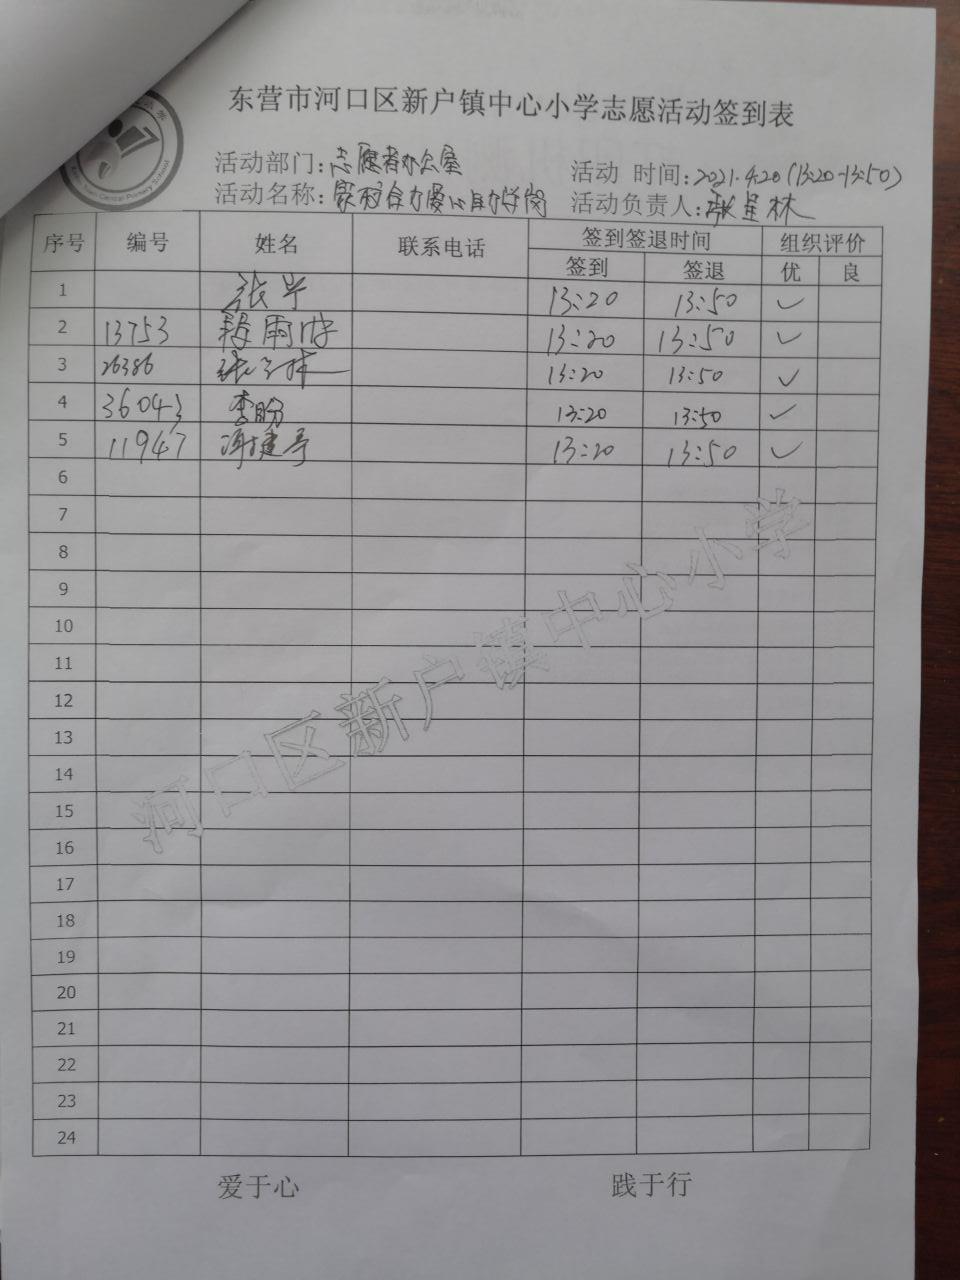 Xin Hu Town Central Primary School
东营市河口区新户镇中心小学志愿活动签到表
活动部门：志愿者办公室 活动 时间：2021.4.20(13:20-13:50)
活动名称：家校合力爱心助学岗 活动负责人：
序号 编号 姓名 联系电话 签到签退时间 组织评价
签到 签退 优 良
1 13:20 13:50 ✓
2 13753 13:20 13:50 ✓
3 26386 13:20 13:50 ✓
4 36043 李盼 13:20 13:50 ✓
5 11947 13:20 13:50 ✓
6
7
8
9
10
11
12
13
14
15
16
17
18
19
20
21
22
23
24
河口区新户镇中心小学
爱于心 践于行